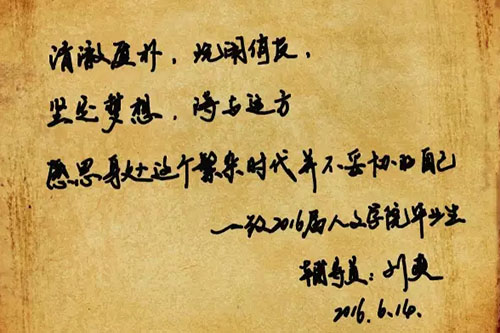 清澈质朴，沉闲情长，
坚定梦想，诗与远方
感恩身处这个繁杂时代并不妥协的自己
—致2016届人文学院毕业生
辅导员：刘爽
2016.6.14.